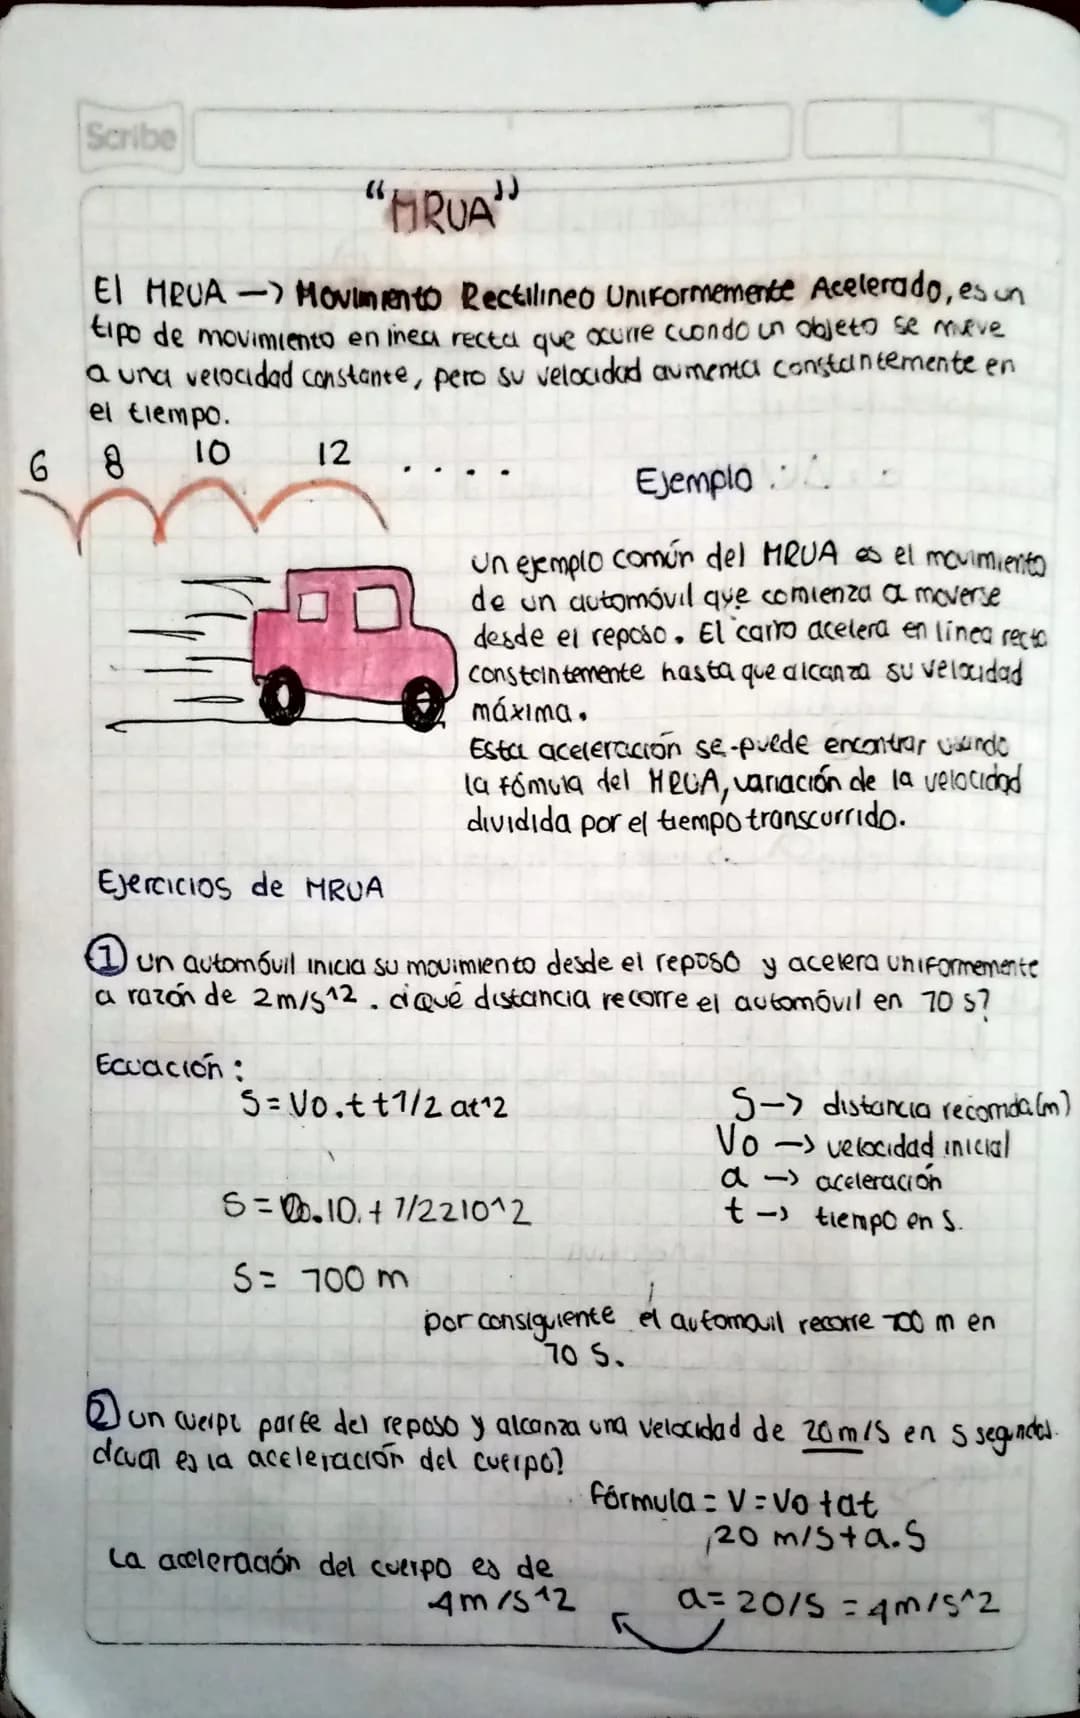 Scribe
"MRUA"
El MRUA —> Movimiento Rectilineo Uniformemente Acelerado, es un
tipo de movimiento en inea recta que ocurre cuando un objeto se mueve
a una velocidad constante, pero su velocidad aumenta constantemente en
el tiempo.
6 8 10 12 ....
Ejemplo :
un ejemplo común del MRUA es el movimiento
de un automóvil que comienza a moverse
desde el reposo. El carro acelera en línea recta
constantemente hasta que alcanza su velocidad
máxima.
Esta aceleración se puede encontrar usando
la fómula del MRUA, variación de la velocidad
dividida por el tiempo transcurrido.
Ejercicios de MRUA
① un automóvil inicia su movimiento desde el reposo y acelera uniformemente
a razón de 2m/s^2. ¿Qué distancia recorre el automóvil en 10 s?
Ecuación :
S = Vo.t+1/2 at^2
S —> distancia recorrida (m)
Vo —> velocidad inicial
a —> aceleración
t —> tiempo en s.
S = 0.10.+1/2210^2
S = 100 m
por consiguiente el automovil recorre 100 m en
10 S.
② un cuerpo parte del reposo y alcanza una velocidad de 20m/s en 5 segundos.
¿cual es la aceleración del cuerpo?
fórmula = V = Vo + at
20 m/s + a.5
La aceleración del cuerpo es de
4m/s^2
a = 20/5 = 4m/s^2